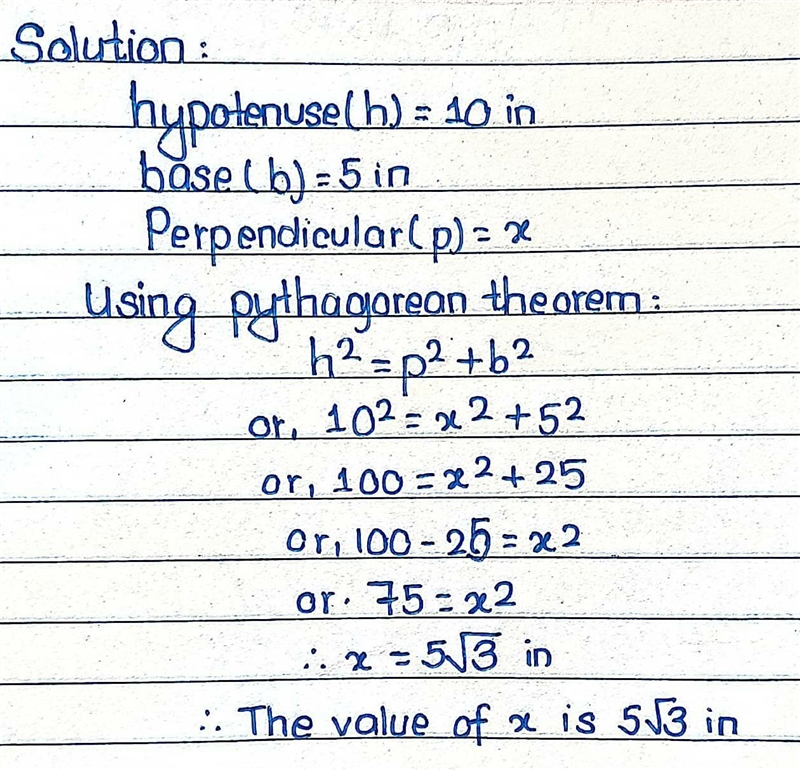 Solution:
hypotenuse(h) = 10 in
base(b) = 5 in
Perpendicular(p) = x
Using pythagorean theorem:
h² = p² + b²
or, 10² = x² + 5²
or, 100 = x² + 25
or, 100 - 25 = x2
or. 75 = x2
∴ x = 5√3 in
∴ The value of x is 5√3 in